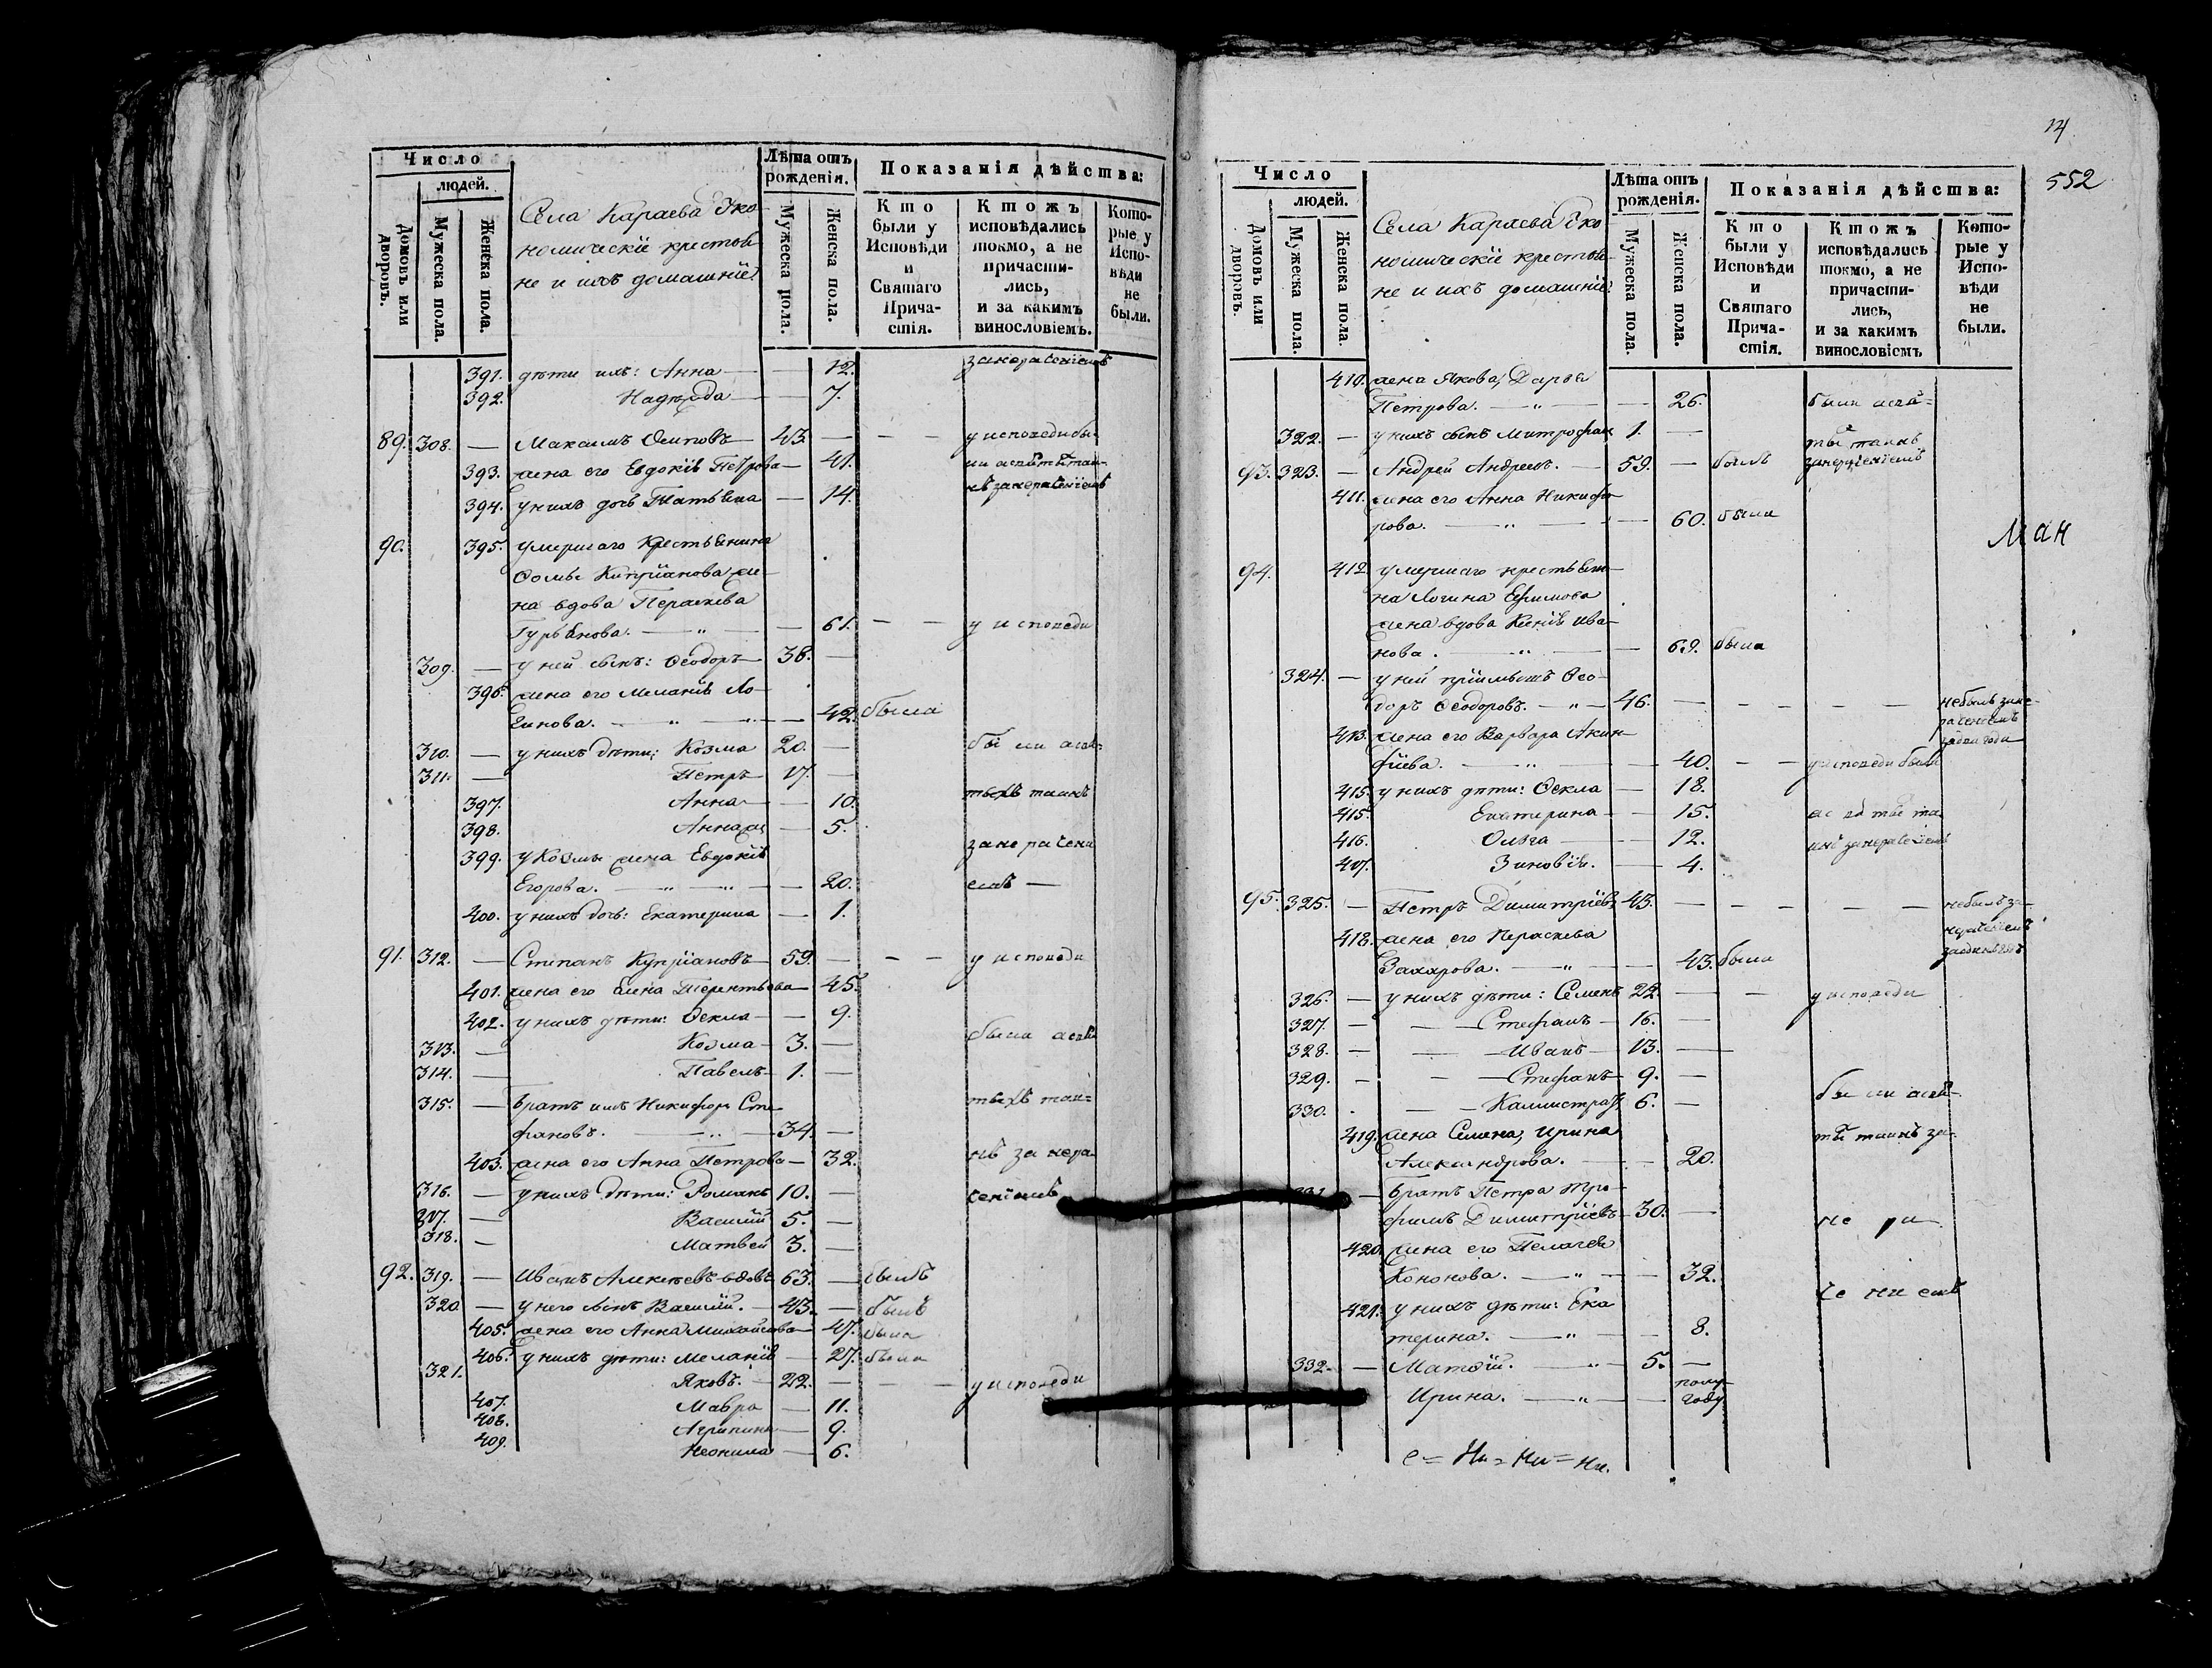 Число
людей.
Домовъ или дворовъ.
Мужеска пола.
Женска пола.
Села Караева Эко
номическіе крестья
не и ихъ домашніе
Лѣта отъ рожденія.
Мужеска пола.
Женска пола.
Показанія дѣйства:
Кто были у Исповѣди и Святаго Причастія.
Ктожъ исповѣдались токмо, а не причастились, и за какимъ винословіемъ.
Которые у Исповѣди не были.
391. дѣти ихъ: Анна — — 12.
392. Надежда — — 7.
89. 308. — Максимъ Осиповъ — 43. — — — у исповеди бы-
393. жена его Евдокія Петрова — 41.
394. у нихъ дочь Татьяна — 14.
90. 395. умершаго Крестьянина
Фомы Кипріанова же-
на вдова Пераскева
Гурьянова. — „ — — 61. — — у исповеди
309. — у ней сынъ: Феодоръ — 38. —
396. жена его Меланія Ло-
гинова. — „ — „ — 42. была
310. — у нихъ дѣти: Козма 20. —
311. — Петръ — 17. —
397. Анна — — 10.
398. Анна ж — 5.
399. у Козмы жена Евдокія
Егорова. — „ — „ — — 20.
400. у нихъ дочь: Екатерина — 1.
91. 312. — Степанъ Купріановъ — 59. — — — у исповеди
401. жена его Елена Терентьева — 45.
402. у нихъ дѣти: Фекла — — 9.
313. — Козма — 3. —
314. — Павелъ — 1. —
315. — братъ ихъ Никифоръ Сте
фановъ. — „ — 34. —
403. жена его Анна Петрова — 32.
316. — у нихъ дѣти: Романъ 10. —
317. — Василій 5. —
318. — Матвей 3. —
92. 319. — Иванъ Алексѣевъ вдовъ 63. — былъ
320. — у него сынъ Василій. — 43. — былъ
405. жена его Анна Михайлова — 47. была
406. у нихъ дѣти: Меланія — 27. была
321. Яковъ. — 22. — — — у исповеди
407. Мавра — 11.
408. Агрипина — 9.
409. Неонила — 6.
14
552
Число
людей.
Домовъ или дворовъ.
Мужеска пола.
Женска пола.
Села Караева Эко
номическіе крестья
не и ихъ домашніе
Лѣта отъ рожденія.
Мужеска пола.
Женска пола.
Показанія дѣйства:
Кто были у Исповѣди и Святаго Причастія.
Ктожъ исповѣдались токмо, а не причастились, и за какимъ винословіемъ
Которые у Исповѣди не были.
410. жена Якова, Дарья
Петрова. — „ — — 26.
322. — у нихъ сынъ Митрофан 1. —
93. 323. — Андрей Андреевъ. — 59. — былъ
411. жена его Анна Никифо
рова. — „ — — 60. была
ман
94. 412. умершаго крестьяни-
на Логина Ефимова
жена вдова Ксенія Ива-
нова. — „ — — 69. была
324. — у ней пріимышъ Фео-
доръ Феодоровъ. — „ — 46. — — — — — не былъ за не-
413. жена его Варвара Акин-
фіева. — „ — — 40. — — у исповеди были
415. у нихъ дѣти: Фекла — 18.
415. Екатерина — — 15.
416. Ольга — — 12.
417. Зиновія. — — 4.
95. 325. — Петръ Димитріевъ 45. — — — — — не былъ за-
418. жена его Пераскева
Захарова. — „ — — 43. была
326. — у нихъ дѣти: Семенъ 22. — — у исповеди
327. — — — Стефанъ — 16. —
328. — — — Иванъ — 13. —
329. — — — Стефанъ — 9. —
330. — — Каллистратъ 6. —
419. жена Семена, Ирина
Александрова. — — 20.
331. — братъ Петра Тро-
фимъ Димитріевъ — 30. —
420. жена его Пелагея
Кононова. — „ — — 32.
421. у нихъ дѣти: Ека
терина. — „ — — 8.
332. — Матѳій. — „ — 5. —
Ирина. — „ — — полу году